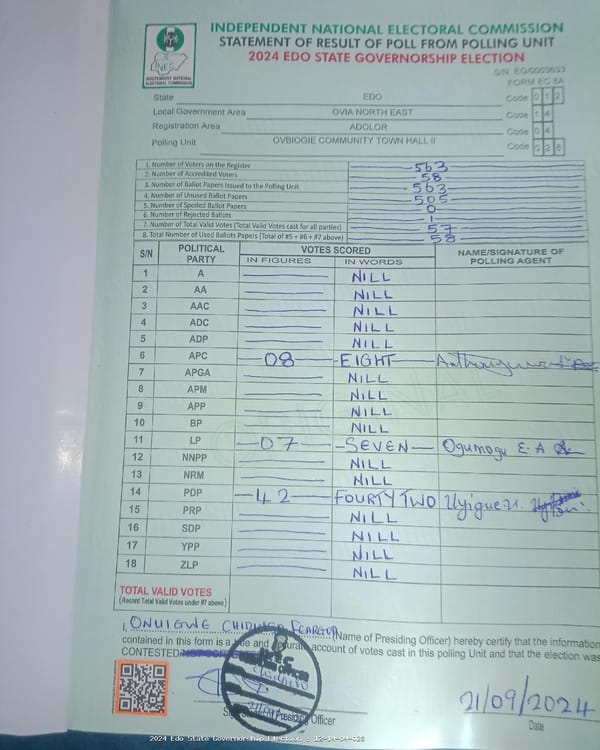 INDEPENDENT NATIONAL ELECTORAL COMMISSION
STATEMENT OF RESULT OF POLL FROM POLLING UNIT
2024 EDO STATE GOVERNORSHIP ELECTION
FORM EC 8A
INEC
INDEPENDENT NATIONAL ELECTORAL COMMISSION
State EDO Code 0 1 2
Local Government Area OVIA NORTH EAST Code 1 4
Registration Area ADOLOR Code 0 4
Polling Unit OVBIOGIE COMMUNITY TOWN HALL II Code 0 2 8
1. Number of Voters on the Register 563
2. Number of Accredited Voters 58
3. Number of Ballot Papers Issued to the Polling Unit 563
4. Number of Unused Ballot Papers 505
5. Number of Spoiled Ballot Papers 0
6. Number of Rejected Ballots 1
7. Number of Total Valid Votes (Total Valid Votes cast for all parties) 57
8. Total Number of Used Ballots Papers (Total of #5 + #6 + #7 above) 58
S/N POLITICAL PARTY VOTES SCORED NAME/SIGNATURE OF POLLING AGENT
IN FIGURES IN WORDS
1 A NILL
2 AA NILL
3 AAC NILL
4 ADC NILL
5 ADP NILL
6 APC 08 EIGHT
7 APGA NILL
8 APM NILL
9 APP NILL
10 BP NILL
11 LP 07 SEVEN Ogumogu E. A
12 NNPP NILL
13 NRM NILL
14 PDP 42 FOURTY TWO Uyigue
15 PRP NILL
16 SDP NILL
17 YPP NILL
18 ZLP NILL
TOTAL VALID VOTES
(Record Total Valid Votes under #7 above)
I, ONUIGWE (Name of Presiding Officer) hereby certify that the information
contained in this form is a true and accurate account of votes cast in this polling Unit and that the election was
CONTESTED/NOT CONTESTED
Presiding Officer
21/09/2024
Date
2024 Edo State Governorship Election - 12-14-04-028